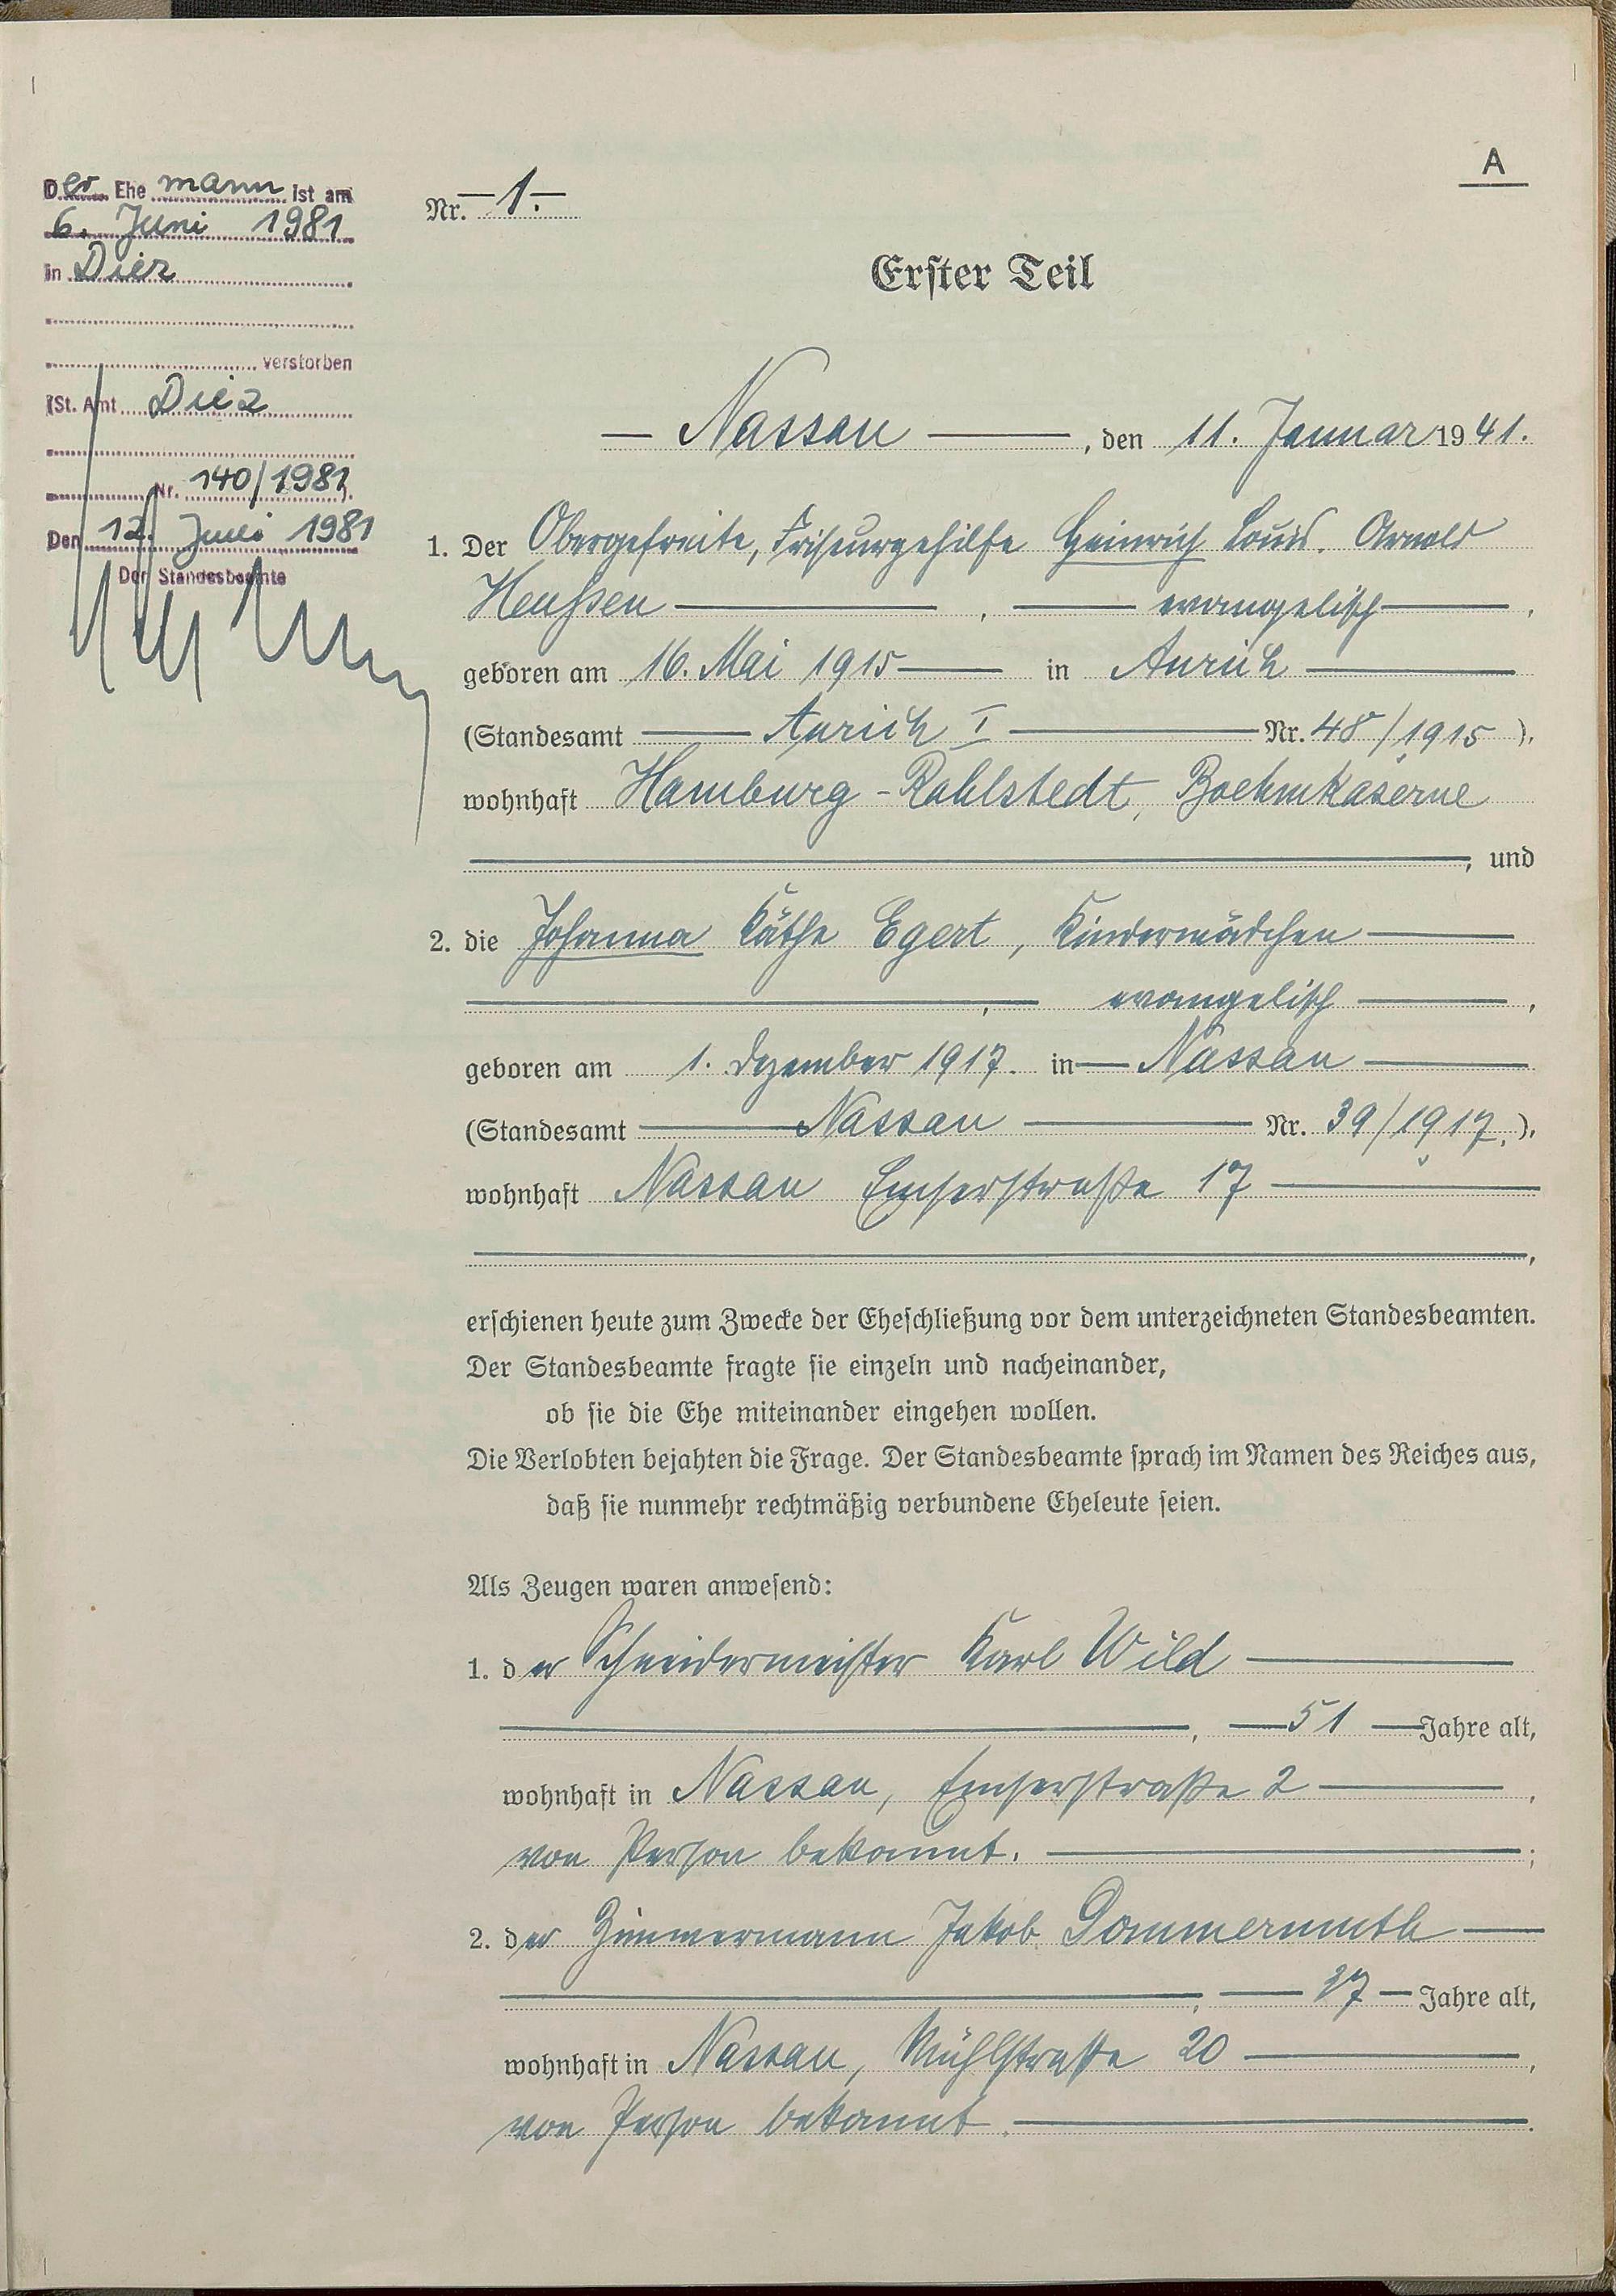 A
Der Ehe mann ist am
6. Juni 1981
in Diez
verstorben
(St. Amt Diez
Nr. 140/1981).
Den 12. Juni 1981
Der Standesbeamte
Nr. 1.
Erster Teil
Nassau, den 11. Januar 1941.
1. Der Obergefreite, Friseurgehilfe Heinrich Louis Arnold
Heußen, evangelisch,
geboren am 16. Mai 1915 in Aurich
(Standesamt Aurich I Nr. 48/1915),
wohnhaft Hamburg-Rahlstedt, Boehmkaserne
, und
2. die Johanna Käthe Egert, Kindermädchen
, evangelisch,
geboren am 1. Dezember 1917. in Nassau
(Standesamt Nassau Nr. 39/1917.),
wohnhaft Nassau Emserstraße 17
,
erschienen heute zum Zwecke der Eheschließung vor dem unterzeichneten Standesbeamten.
Der Standesbeamte fragte sie einzeln und nacheinander,
ob sie die Ehe miteinander eingehen wollen.
Die Verlobten bejahten die Frage. Der Standesbeamte sprach im Namen des Reiches aus,
daß sie nunmehr rechtmäßig verbundene Eheleute seien.
Als Zeugen waren anwesend:
1. der Schneidermeister Karl Wild
, 51 Jahre alt,
wohnhaft in Nassau, Emserstraße 2,
von Person bekannt.;
2. der Zimmermann Jakob Dommermuth
, 37 Jahre alt,
wohnhaft in Nassau, Mühlstraße 20,
von Person bekannt.